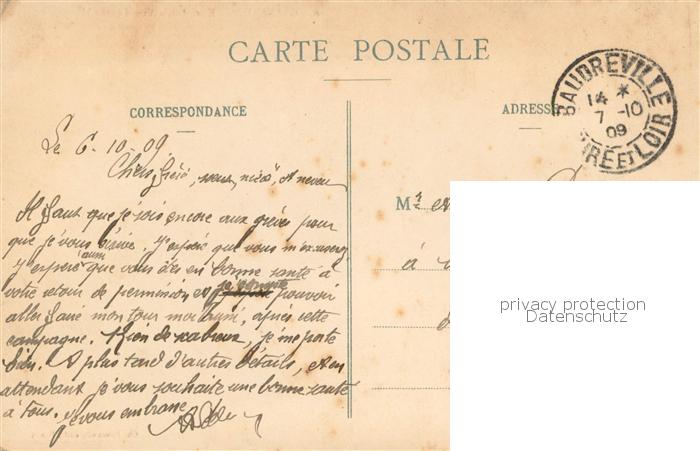 CARTE POSTALE
CORRESPONDANCE
ADRESSE
BAUDREVILLE
14 *
7 -10
09
EURE ET LOIR
Le 6-10-09
Chers frère, sœur, nièce, et neveu
Il faut que je sois encore aux grèves pour
que je vous écrive. J'espère que vous m'excuserez
J'espère aussi que vous êtes en bonne santé à
votre retour de permission et je compte pouvoir
aller faire mon tour moi aussi, après cette
campagne. Rien de scabreux, je me porte
bien. A plus tard d'autres détails, et en
attendant je vous souhaite une bonne santé
à tous. je vous embrasse
Mr et
à
privacy protection
Datenschutz